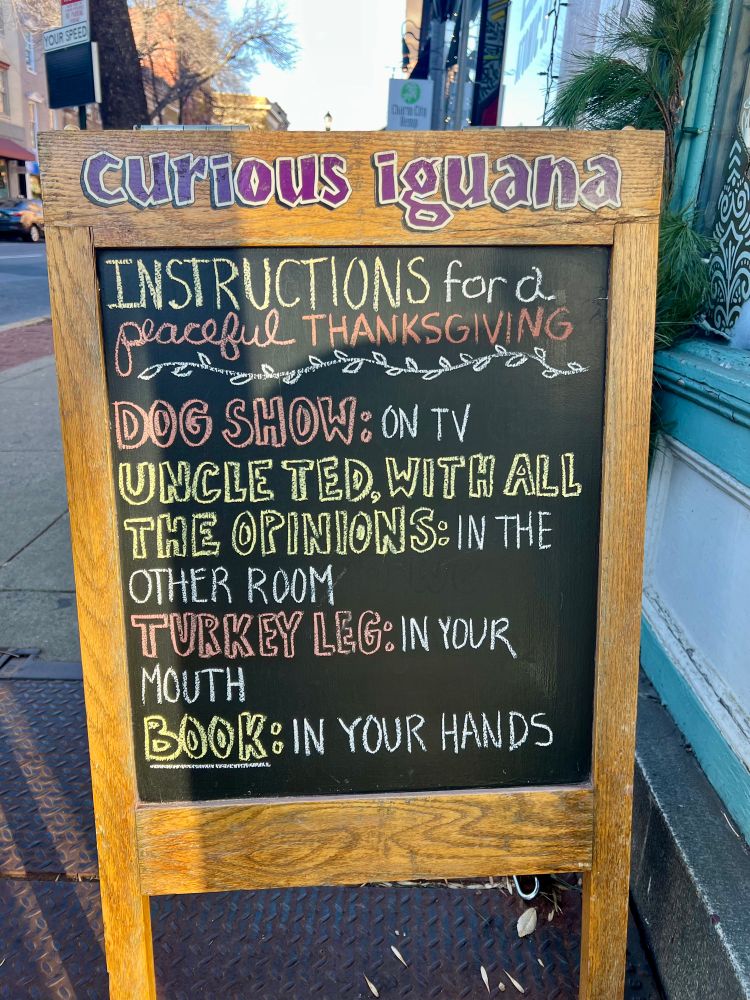 YOUR SPEED
Charm City
Hemp
curious iguana
INSTRUCTIONS for a
peaceful THANKSGIVING
DOG SHOW: ON TV
UNCLE TED, WITH ALL
THE OPINIONS: IN THE
OTHER ROOM
TURKEY LEG: IN YOUR
MOUTH
BOOK: IN YOUR HANDS